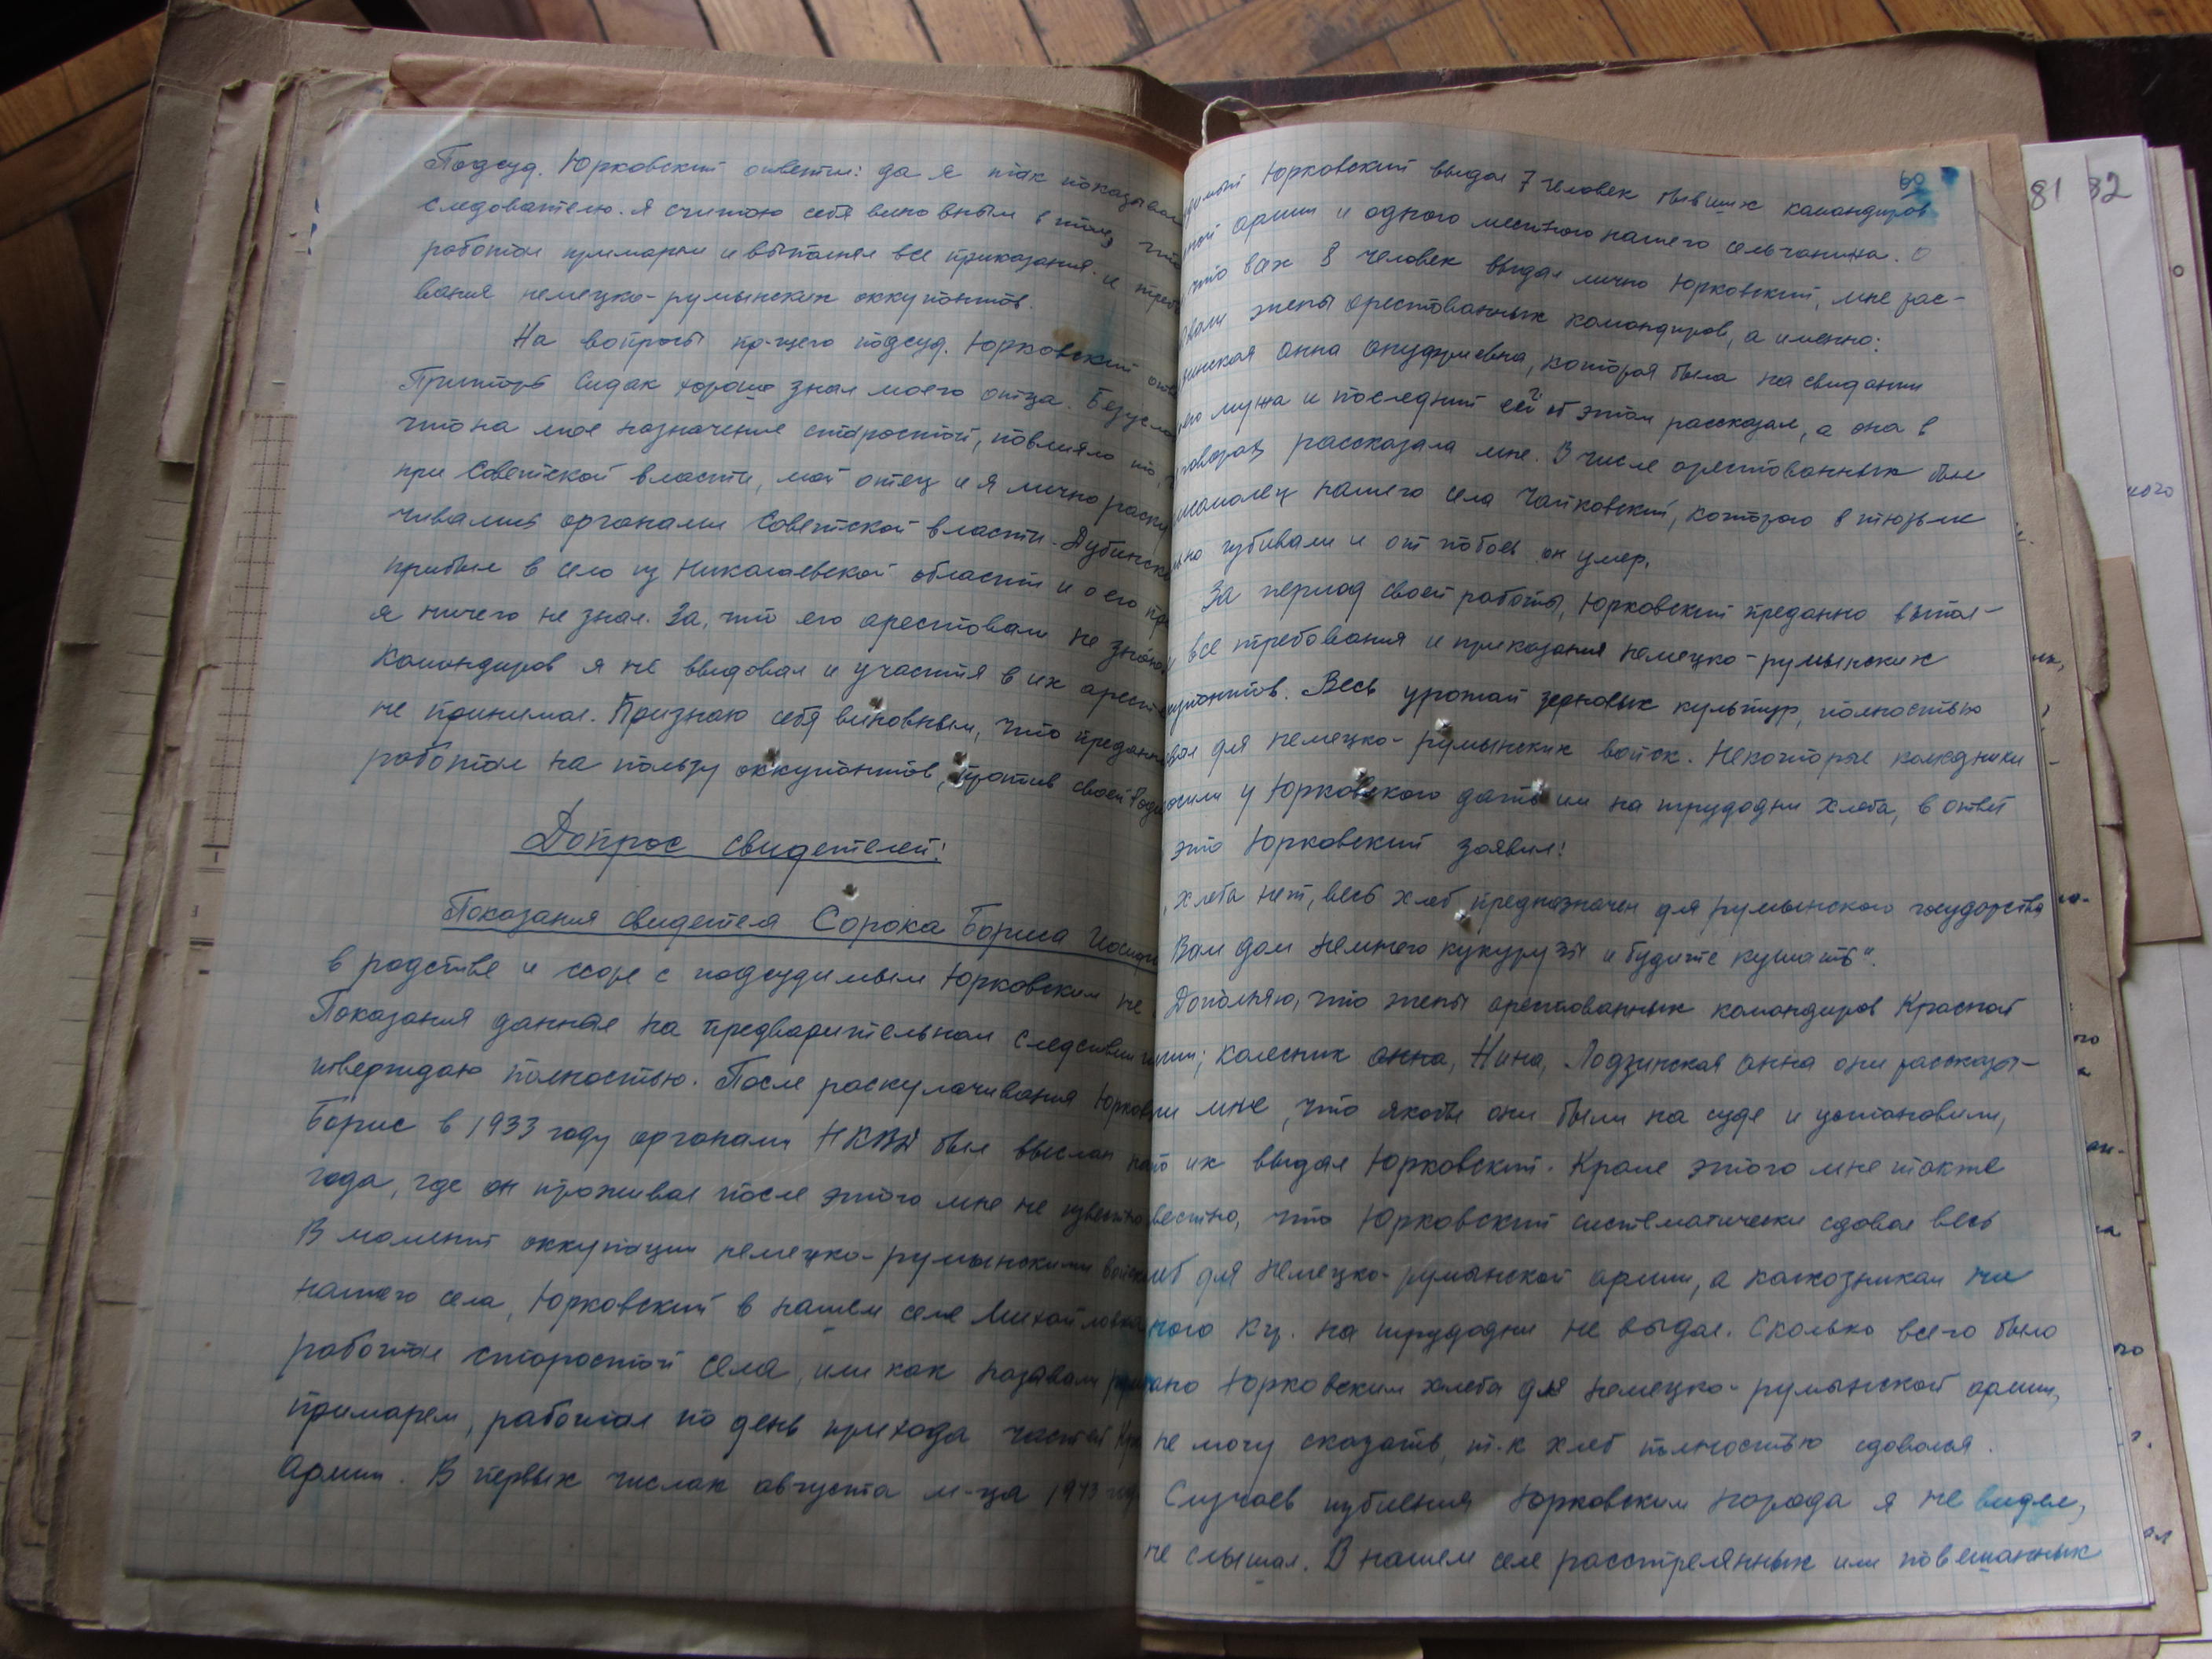 Подсуд. Юрковский ответил: да я так показывал
следователю. Я считаю себя виновным в том, что
работал примарем и выполнял все приказания и треб
вания немецко-румынских оккупантов.
На вопросы пр-щего подсуд. Юрковский отв
Притворь Сидак хорошо знал моего отца. Безусло
что на мое назначение старостой, повлияло то,
при Советской власти, мой отец и я лично раску
чивались органами Советской власти. Дубинск
прибыл в село из Николаевской области и о его пр
я ничего не знал. За, что его арестовали не знаю
Командиров я не выдавал и участия в их арест
не принимал. Признаю себя виновным, что преданно
работал на пользу оккупантов, против своей Роди
Допрос свидетелей:
Показания свидетеля Сорока Бориса Иосиф
в родстве и ссоре с подсудимым Юрковским не
Показания данные на предварительном следствии
тверждаю полностью. После раскулачивания Юрков
Борис в 1933 году органами НКВД был выслан на
года, где он проживал после этого мне не известно
В момент оккупации немецко-румынскими войск
нашего села, Юрковский в нашем селе Михайловка
работал старостой села, или как называли рум
примарем, работал по день прихода частей Кра
Армии. В первых числах августа м-ца 1943 год
60
димый Юрковский выдал 7 человек бывших командиров
ной армии и одного местного нашего сельчанина. О
что всех 8 человек выдал лично Юрковский, мне рас-
вали жены арестованных командиров, а именно:
зинская Анна Ануфриевна, которая была на свидании
его мужа и последний ей об этом рассказал, а она в
говорах рассказала мне. В числе арестованных был
сомолец нашего села Чайковский, которого в тюрьме
но избивали и от побоев он умер.
За период своей работы, Юрковский преданно выпол-
л все требования и приказания немецко-румынских
купантов. Весь урожай зерновых культур, полностью
вал для немецко-румынских войск. Некоторые колхозники
осили у Юрковского дать им на трудодни хлеба, в ответ
это Юрковский заявил:
„Хлеба нет, весь хлеб предназначен для румынского государства
Вам дам немного кукурузы и будите кушать".
Дополняю, что жены арестованных командиров Красной
мии; Колесник Нина, Лодзинская Анна они рассказы-
ли мне, что якобы они были на суде и установили,
то их выдал Юрковский. Кроме этого мне также
вестно, что Юрковский систематически сдавал весь
леб для немецко-румынской армии, а колхозникам ни
ного кг. на трудодни не выдал. Сколько всего было
дано Юрковским хлеба для немецко-румынской армии,
не могу сказать, т.к хлеб полностью сдавался.
Случаев избиения Юрковским народа я не видел,
не слышал. В нашем селе расстрелянных или повешанных
81 82